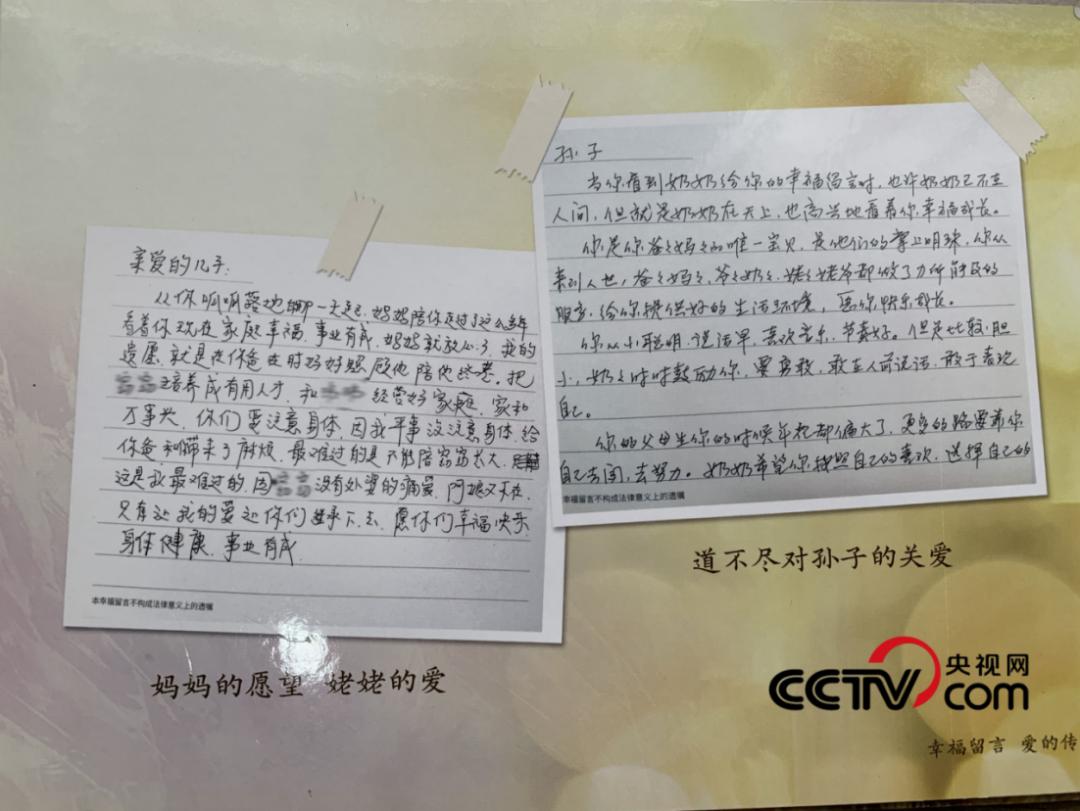 亲爱的儿子:
从你呱呱落地那一天起,妈妈陪你走过了这么多年
看着你现在家庭幸福,事业有成,妈妈就放心了,我的
遗愿就是在你爸在时好好照顾他陪他终老。把
培养成有用人才,和 经营好家庭,家和
万事兴,你们要注意身体,因我平事没注意身体,给
你爸和你带来了麻烦,最难过的是不能陪 长大,
这是我最难过的,因 没有外婆的痛爱,阿娘又不在,
只有让我的爱让你们继承下去,愿你们幸福快乐
身体健康,事业有成
本幸福留言不构成法律意义上的遗嘱
妈妈的愿望 姥姥的爱
孙子
当你看到奶奶给你的幸福留言时,也许奶奶已不在
人间,但就是奶奶在天上,也高兴地看着你幸福成长。
你是你爸爸妈妈的唯一宝贝,是他们的掌上明珠,你从
来到人世,爸爸妈妈,爷爷奶奶,姥姥姥爷都做了力所能及的
服务,给你提供好的生活环境,愿你快乐成长。
你从小聪明,说话早,喜欢音乐,节奏好。但是比较胆
小,奶奶时时鼓励你,要勇敢,敢在人前说话,敢于表现
自己。
你的父母生你的时候年纪都偏大了,更多的路要靠你
自己去闯,去努力。奶奶希望你按照自己的喜欢,选择自己的
幸福留言不构成法律意义上的遗嘱
道不尽对孙子的关爱
CCTV.com 央视网
幸福留言 爱的传